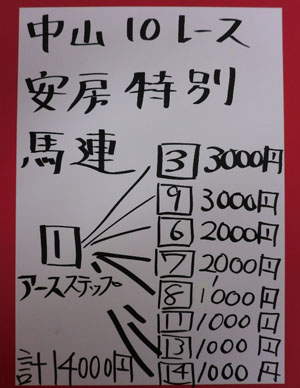 中山10レース
安房特別
馬連
3 3000円
9 3000円
6 2000円
1
7 2,000円
アースステップ
8 1,000円
11 1000円
13 1000円
14 1000円
計14000円